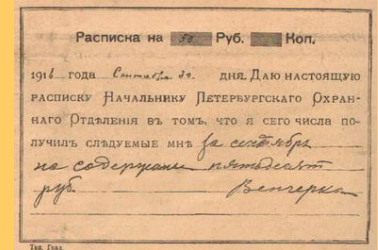 Расписка на 50 Руб. Коп.
1916 года Сентября 30 дня. Даю настоящую
расписку Начальнику Петербургскаго Охран-
наго Отделения въ томъ, что я сего числа по-
лучилъ следуемые мне за сентябрь
на содержание пятьдесят
руб. Венгерка
Тип. Град.